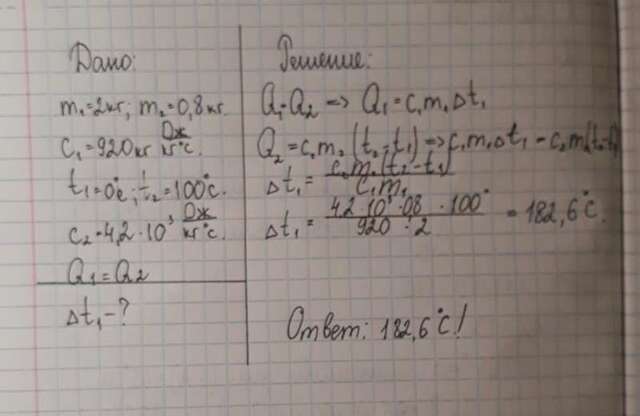 Дано:
m₁=2кг; m₂=0,8кг.
c₁=920кг Дж/кг°с.
t₁=0°с; t₂=100°с.
c₂=4,2·10³ Дж/кг°с.
Q₁=Q₂
Δt₁-?
Решение:
Q₁=Q₂ => Q₁=c₁m₁Δt₁
Q₂=c₂m₂(t₂-t₁) => c₁m₁Δt₁ = c₂m₂(t₂-t₁)
Δt₁ = c₂m₂(t₂-t₁) / c₁m₁
Δt₁ = 4,2·10³·0,8·100° / 920·2 = 182,6°с.
Ответ: 182,6°с!